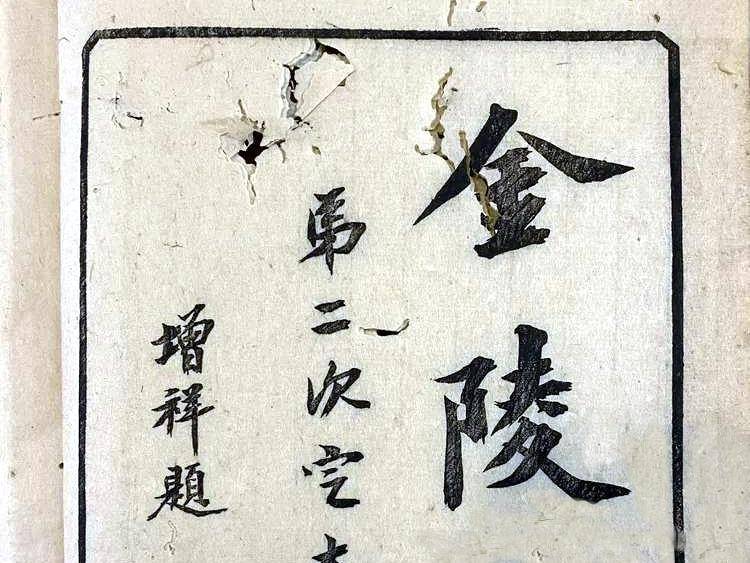 金陵
第二次定
增祥題